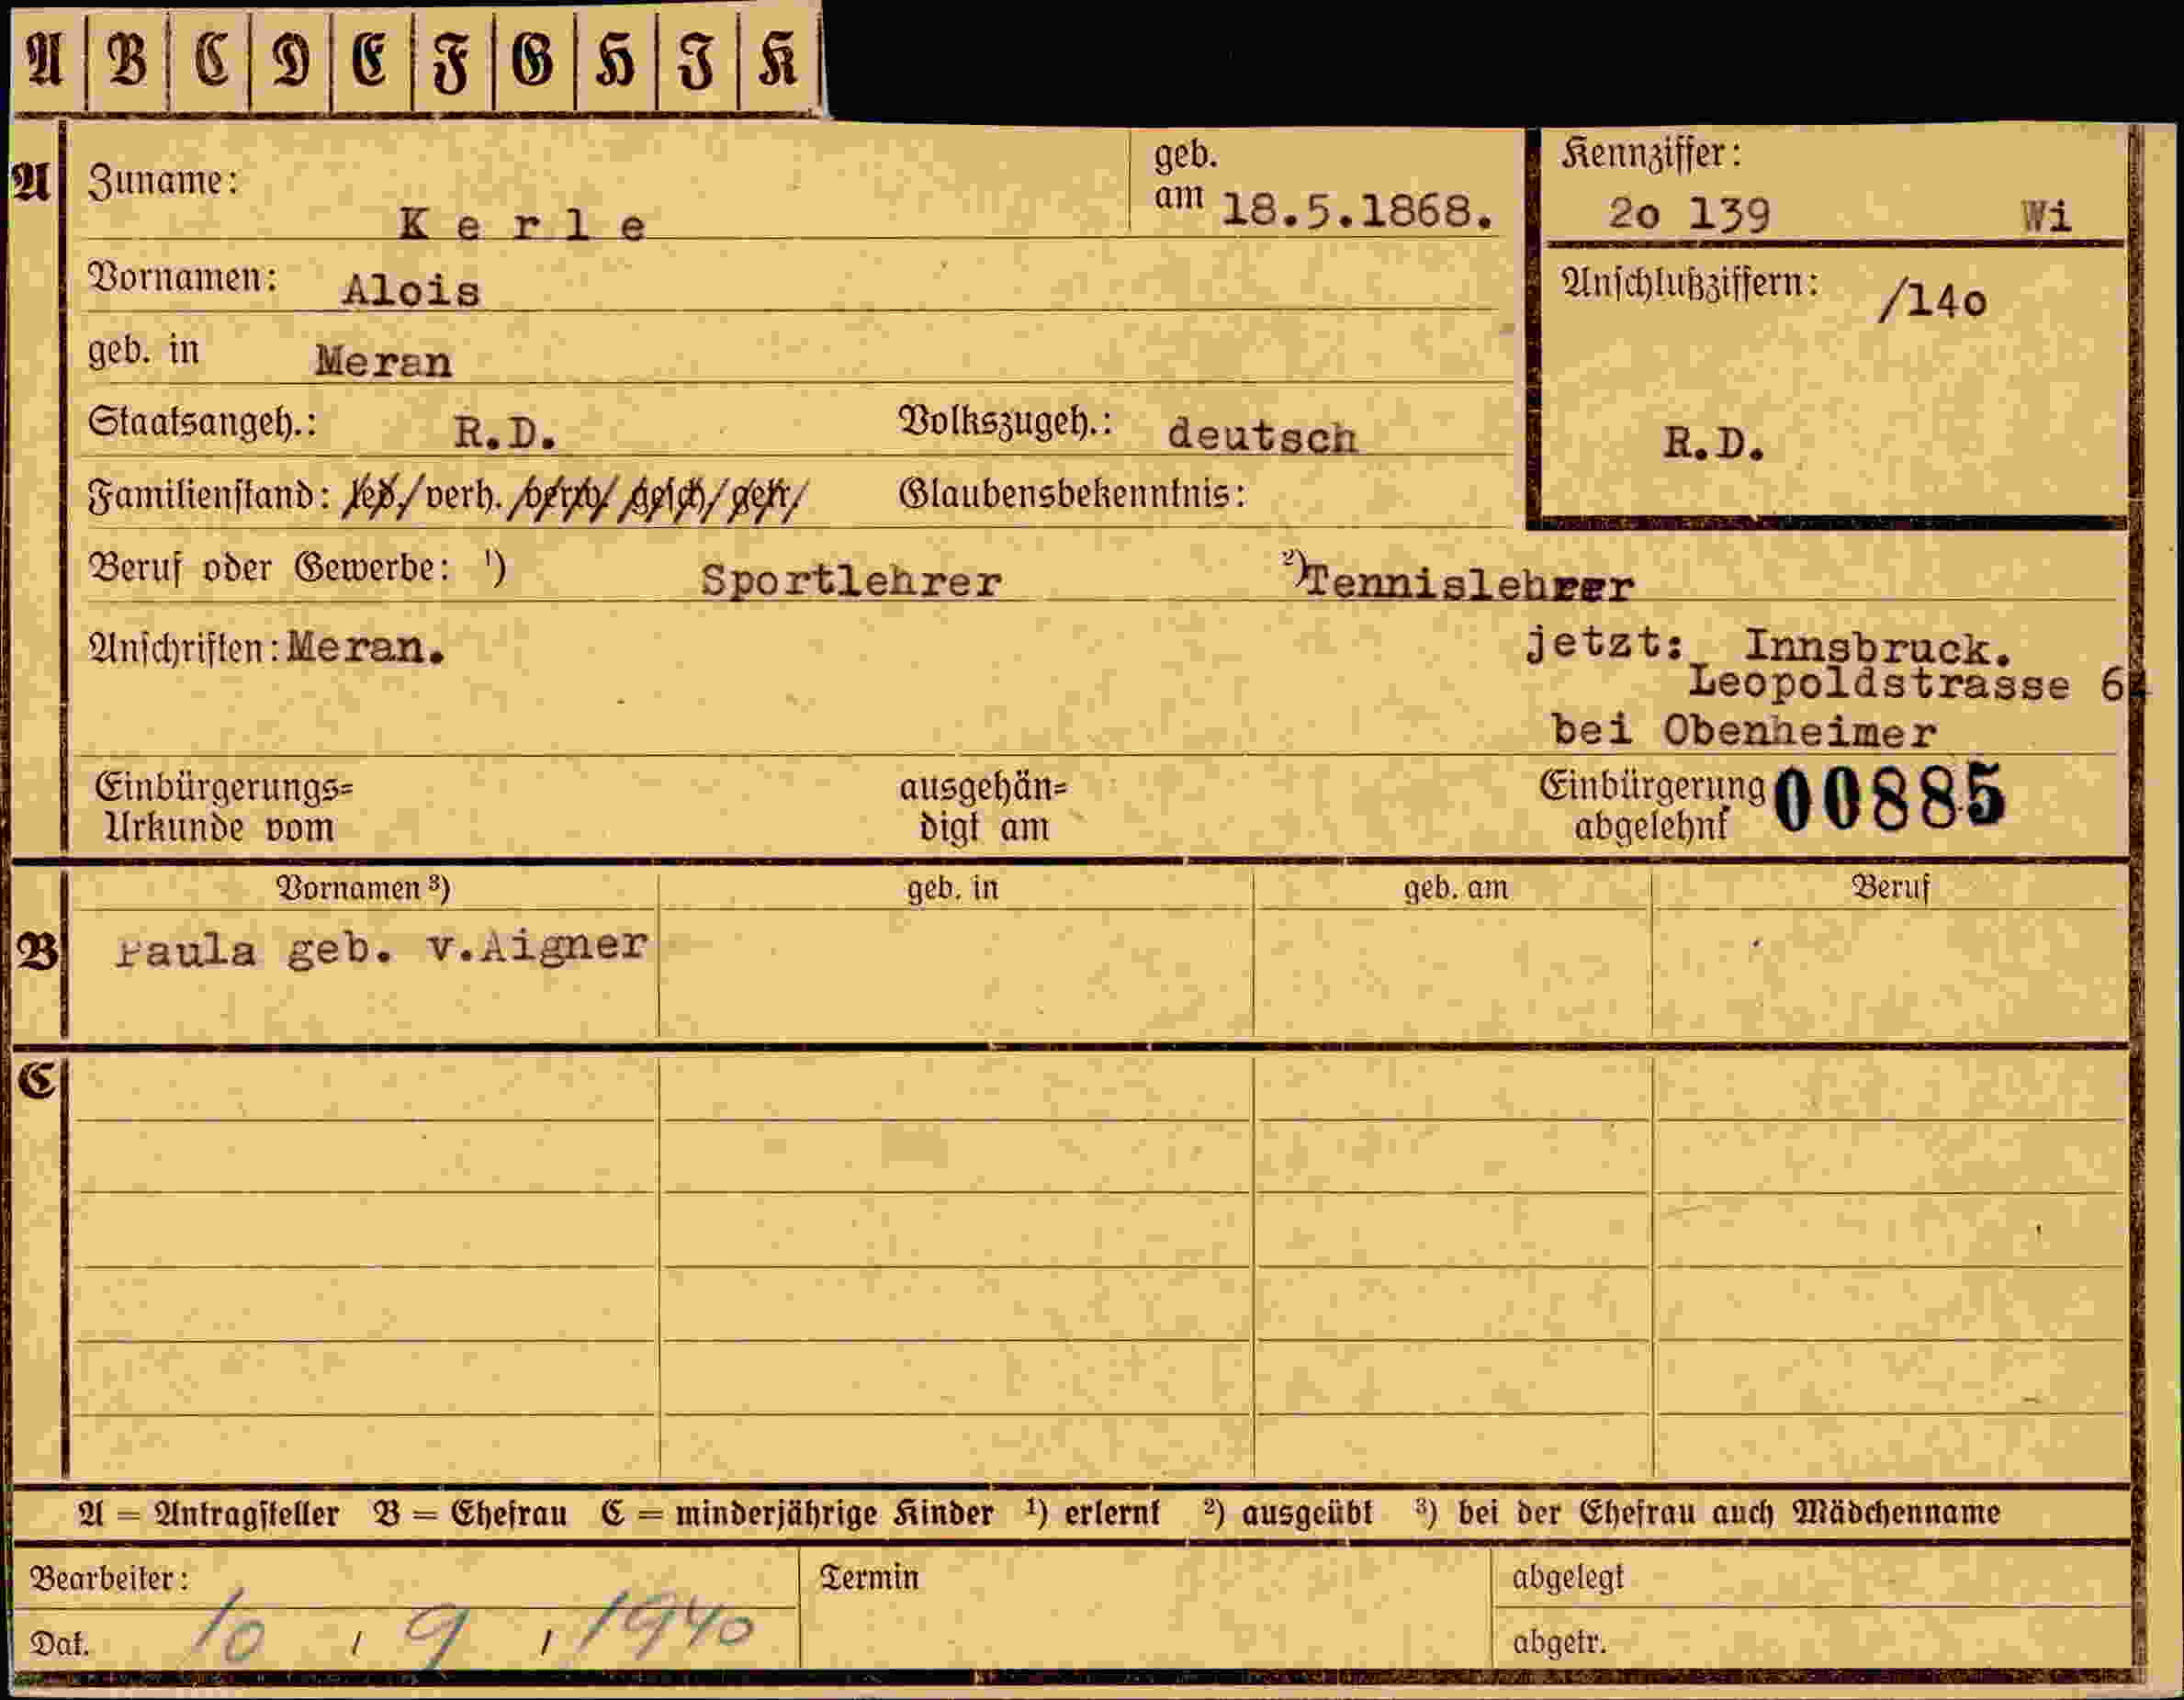 A B C D E F G H I K
A Zuname: Kerle geb. am 18.5.1868. Kennziffer: 2o 139 Wi
Vornamen: Alois Anschlußziffern: /14o
geb. in Meran
Staatsangeh.: R.D. Volkszugeh.: deutsch R.D.
Familienstand: led./verh./verw./gesch./getr./ Glaubensbekenntnis:
Beruf oder Gewerbe: ¹) Sportlehrer ²) Tennislehrer
Anschriften: Meran. jetzt: Innsbruck.
Leopoldstrasse 64
bei Obenheimer
Einbürgerungs= ausgehän= Einbürgerung 00885
Urkunde vom digt am abgelehnt
Vornamen ³) geb. in geb. am Beruf
B Paula geb. v.Aigner
C
A = Antragsteller B = Ehefrau C = minderjährige Kinder ¹) erlernt ²) ausgeübt ³) bei der Ehefrau auch Mädchenname
Bearbeiter: Termin abgelegt
Dat. 10 / 9 / 1940 abgetr.